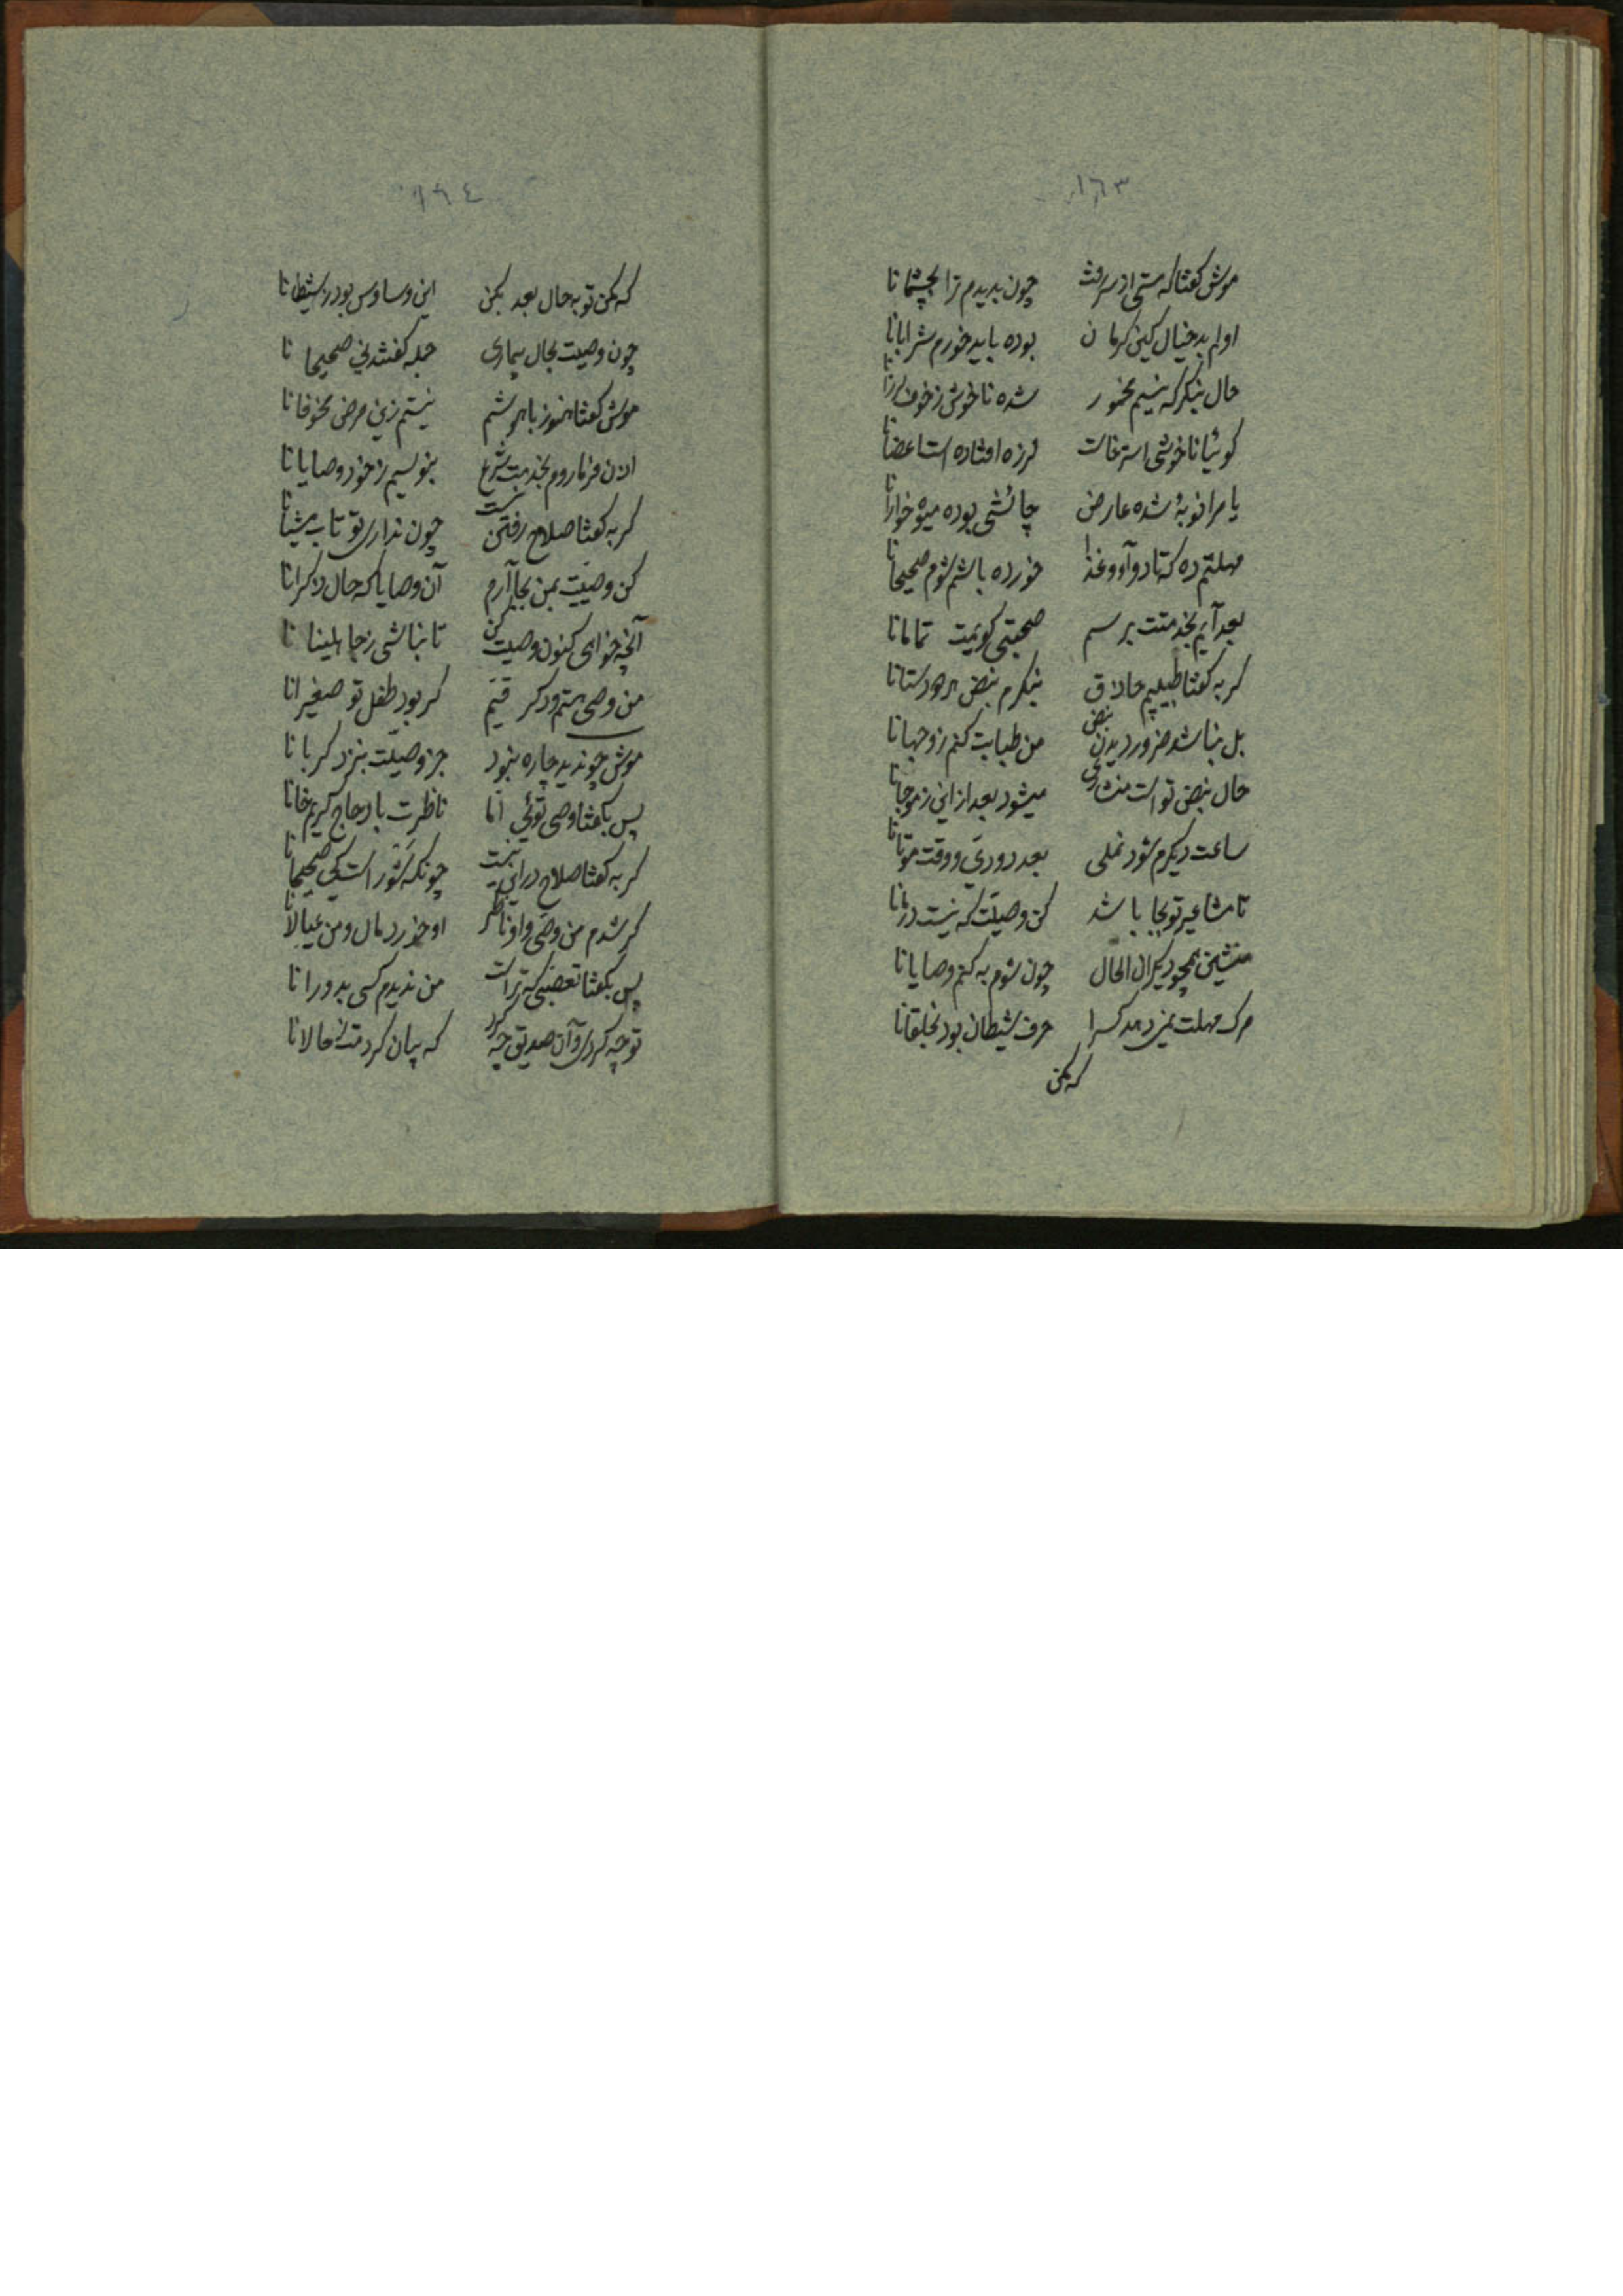 ١٦٣
موش کفتا که مستی از سر رفت چون بدیدم ترا بچشمانا
اولم بد خیال کین کرمان بوده باید خورم شرابانا
حال بنکر که نیستم مخمور شده ناخوش ز خوف لرزانا
کوئیا ناخوشی استرخاست لرزه افتاده است اعضانا
یا مرا نوبهٔ شده عارض چائشی بوده میوه خوارانا
مهلتم ده که تا دوآو و غذا خورده باشم شوم صحیحانا
بعد آیم بخدمتت برسم صحبتی کویمت تمامانا
کربه کفتا طبیبم حاذق بنکرم نبض هر دو دستانا
بل نباشد ضرور دیدن نبض من طبابت کنم ز وجهانا
حال نبض تو است منشاری میشود بعد از این ز موجانا
ساعت دیکرم شود نملی بعد دودیّ و وقت موتانا
تا مشاعیر تو بجا باشد کن وصیّت که نیست درمانا
منشین همچو دیکران الحال چون شوم به کنم وصایانا
مرک مهلت نمیدهد کسرا حرف شیطان بود بخلقانا
که مکن
١٦٤
که مکن توبه حال بعد بکن این وساوس بود ز شیطانا
چون وصیت بحال بیماری جمله کفتند نی صحیحانا
موش کفتا هنوز با هوشم نیستم زین مرض مخوفانا
اذن فرما روم بخدمت شرع بنویسیم ز خود وصایانا
کربه کفتا صلاح رفتن نیست چون نداری تو تاب مشیانا
کن وصیّت بمن بجا آرم آن وصایا که حال ذکرانا
آنچه خواهی کنون وصیت کن تا نباشی ز جاهلینانا
من وصی هستم و دکر قیّم کر بود طفل تو صغیرانا
موش چو ندید چاره نبود جز وصیّت بنزد کربانا
پس بکفتا وصی توئی امّا ناظرت باد حاج کریم خانا
کربه کفتا صلاح در این نیست چونکه کشور است کی صحیحانا
کر شدم من وصّی و او ناظر او خورد مال و من عیالانا
پس بکفتا تعصّبی که تراست من ندیدم کسی بدورانا
تو چه کردی و آن صدیق چه کرد که بیان کردمت ز حالانا